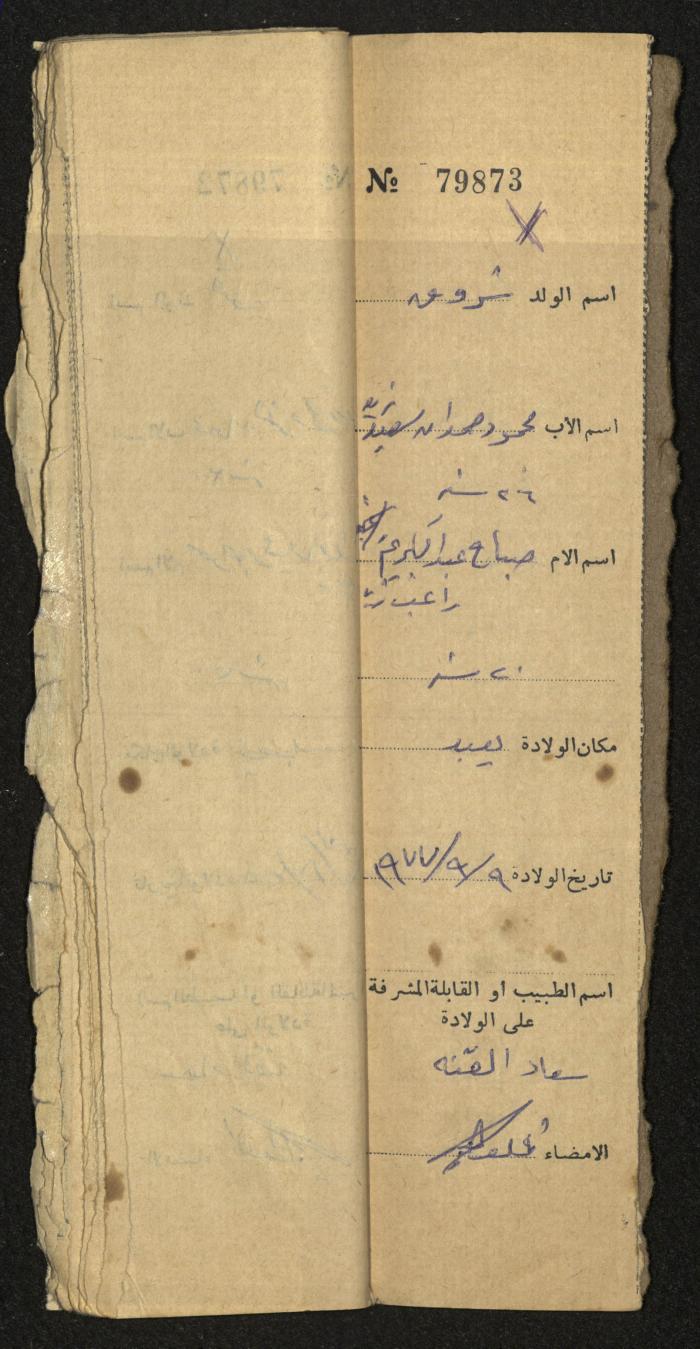 № 79873
اسم الولد شروق
اسم الاب محمود حمدان سعيد
٢٦ سنه
اسم الام صباح عبد الكريم
راغب
٢٠ سنه
مكان الولادة يعبد
تاريخ الولادة ٩/٩/٩٧٧
اسم الطبيب او القابلة المشرفة
على الولادة
سعاد
الامضاء